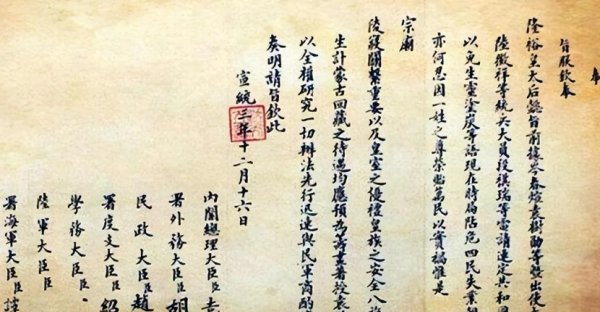 奉
旨朕欽奉
隆裕皇太后懿旨前據岑春煊袁樹勛等暨出使大
陸徵祥等統兵大員段祺瑞等電請速定共和國
以免生靈塗炭等語現在時局阽危四民失業朝
亦何忍因一姓之尊榮貽萬民以實禍惟是
宗廟
陵寢關繫重要以及皇室之優禮皇族之安全八旗
生計蒙古回藏之待遇均應預為籌畫著授袁
以全權研究一切辦法先行迅速與民軍商酌
奏明請旨欽此
宣統三年十二月十六日
內閣總理大臣袁
署外務大臣胡
民政大臣趙
署度支大臣紹
學務大臣
陸軍大臣
署海軍大臣譚